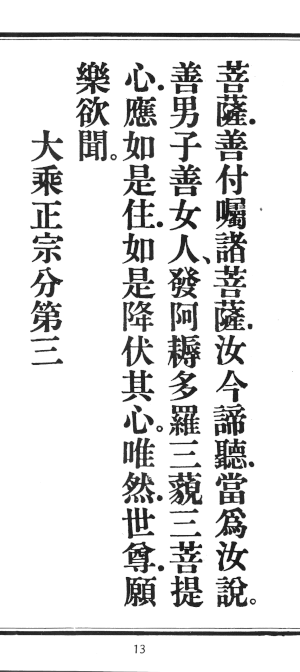 菩薩.善付囑諸菩薩.汝今諦聽.當爲汝說。
善男子善女人、發阿耨多羅三藐三菩提
心.應如是住.如是降伏其心。唯然.世尊.願
樂欲聞。
大乘正宗分第三
13